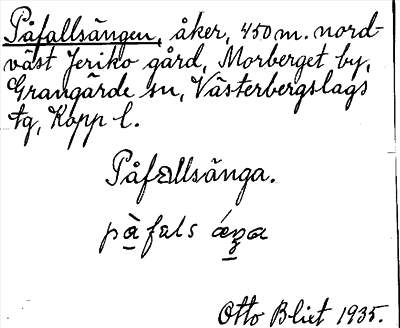 Påfallsängen, åker, 450 m. nord-
väst Jeriko gård, Morberget by,
Grangärde sn, Västerbergslags
tg, Kopp l.
Påfallsänga.
på̱fals
Otto Blixt 1935.